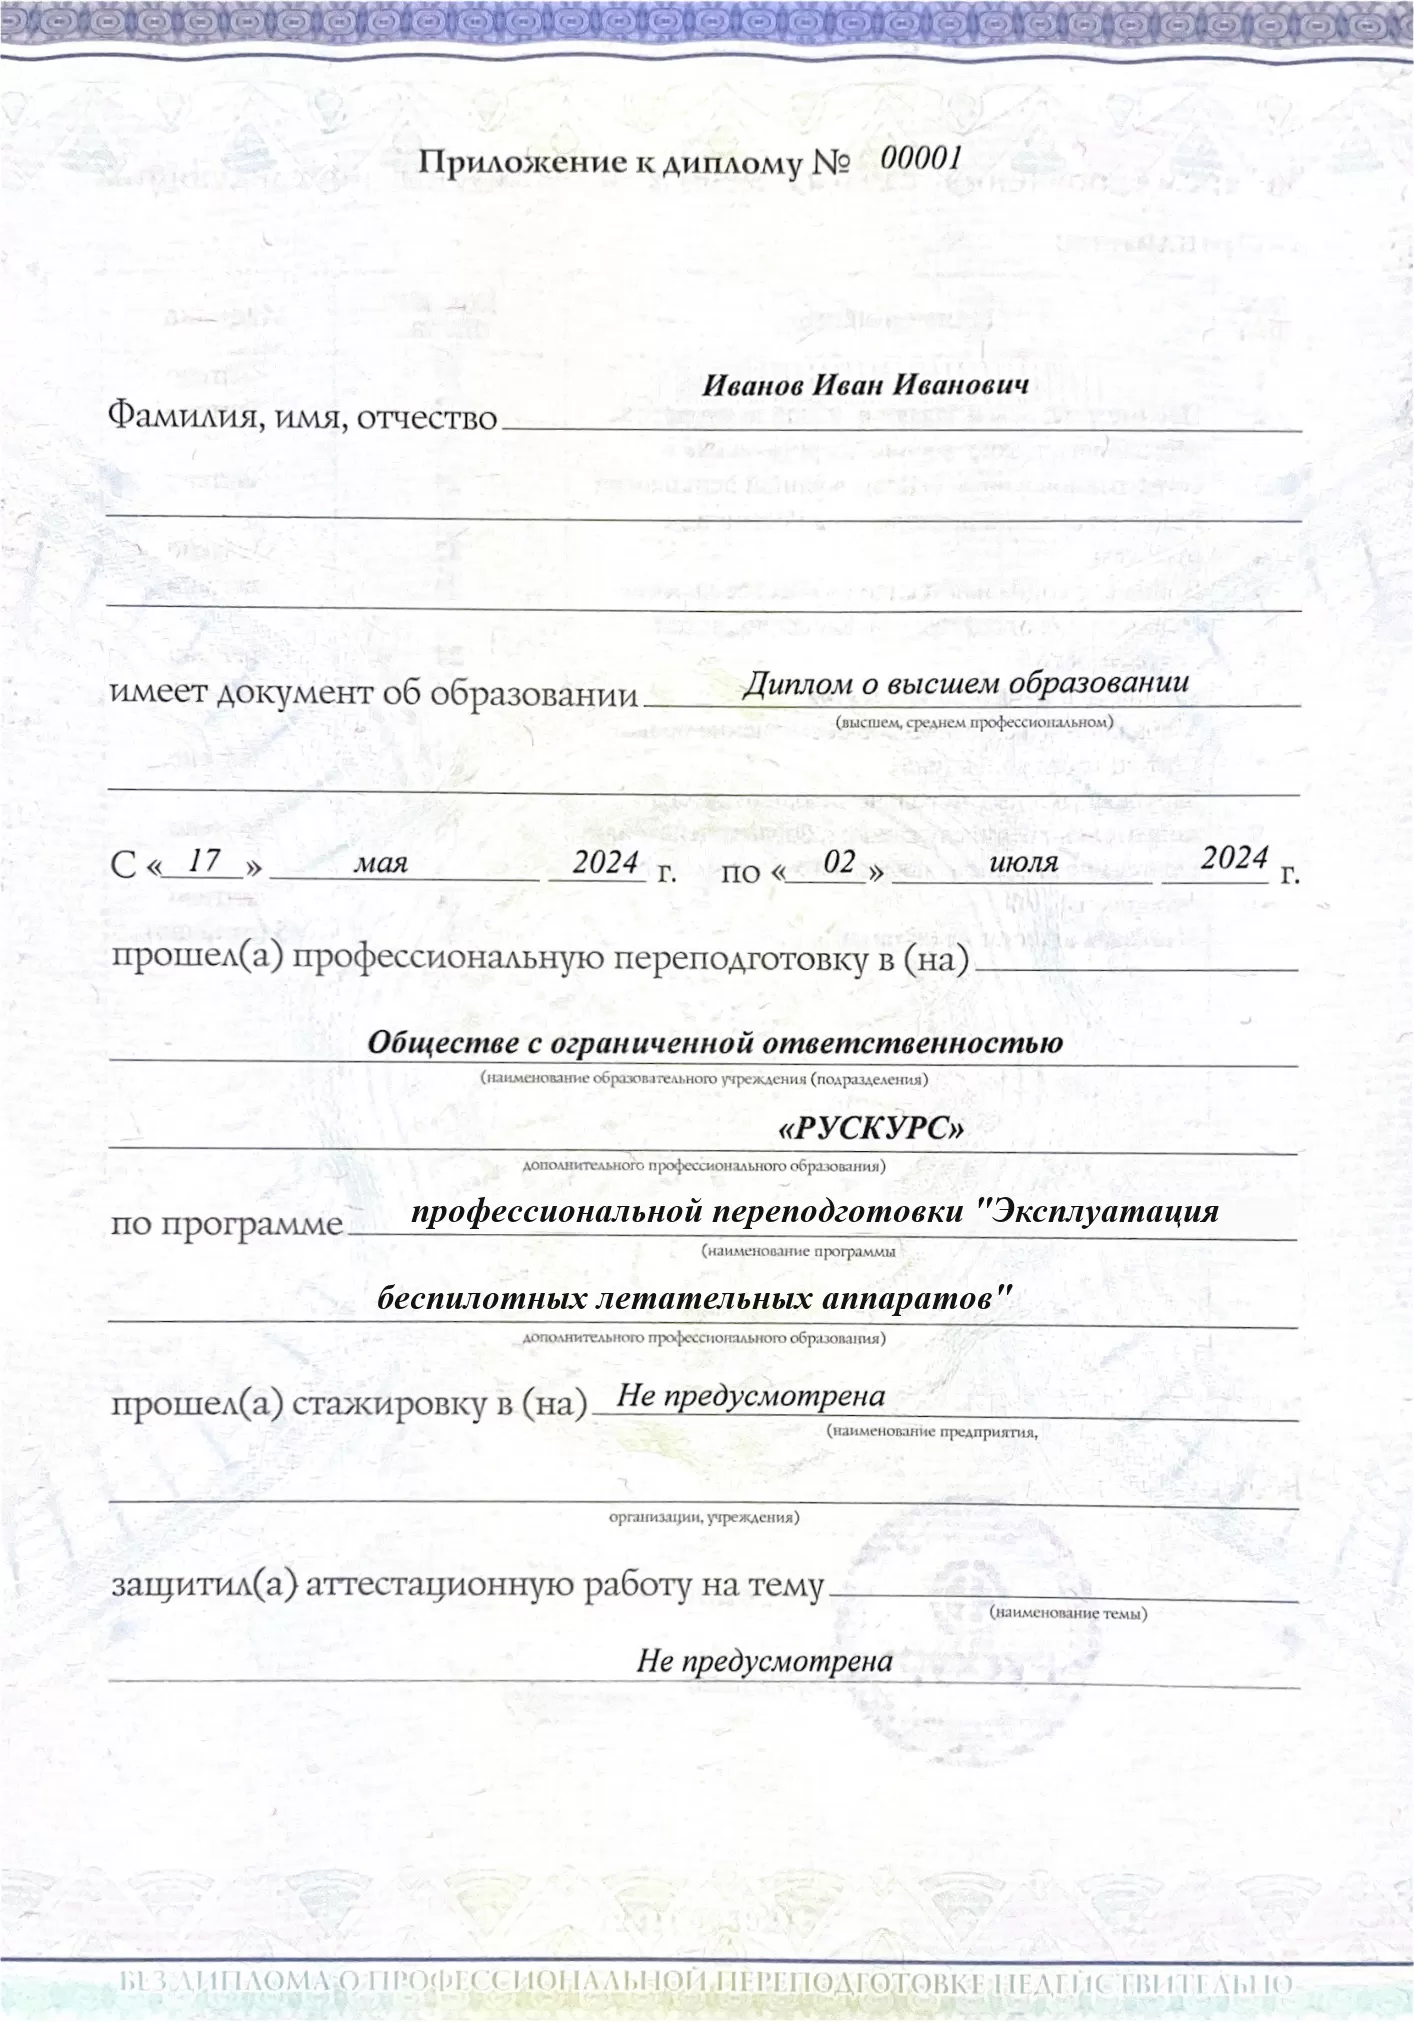 Приложение к диплому № 00001
Иванов Иван Иванович
Фамилия, имя, отчество
имеет документ об образовании Диплом о высшем образовании
(высшем, среднем профессиональном)
С « 17 » мая 2024 г. по « 02 » июля 2024 г.
прошел(а) профессиональную переподготовку в (на)
Обществе с ограниченной ответственностью
(наименование образовательного учреждения (подразделения)
«РУСКУРС»
дополнительного профессионального образования)
по программе профессиональной переподготовки "Эксплуатация
(наименование программы
беспилотных летательных аппаратов"
дополнительного профессионального образования)
прошел(а) стажировку в (на) Не предусмотрена
(наименование предприятия,
организации, учреждения)
защитил(а) аттестационную работу на тему
(наименование темы)
Не предусмотрена
БЕЗ ДИПЛОМА О ПРОФЕССИОНАЛЬНОЙ ПЕРЕПОДГОТОВКЕ НЕДЕЙСТВИТЕЛЬНО